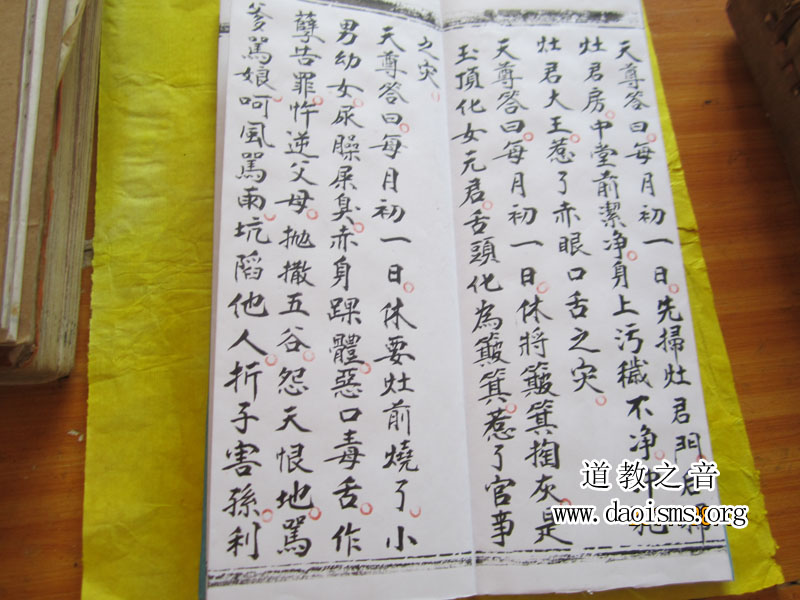 天尊答曰每月初一日先掃灶君門后
灶君房中堂前潔净身上污穢不净
灶君大王惹了赤眼口舌之灾
天尊答曰每月初一日休將簸箕掏灰是
玉頂化女元君舌頭化為簸箕惹了官事
之灾
天尊答曰每月初一日休要灶前燒了小
男幼女尿臊屎臭赤身踝體惡口毒舌作
孽告罪忤逆父母抛撒五谷怨天恨地罵
爹罵娘呵風罵雨坑陷他人折子害孫利
道教之音
www.daoisms.org